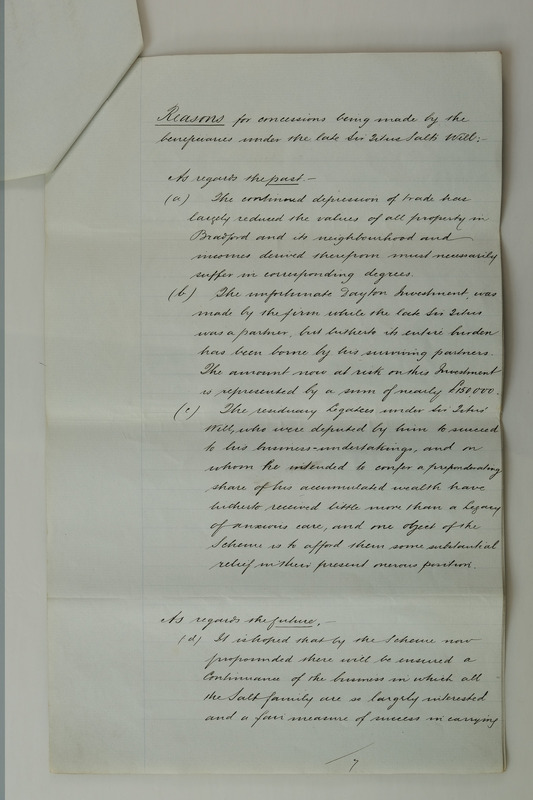 Reasons for concessions being made by the
beneficiaries under the late Sir Titus Salt's Will:-
As regards the past.-
(a) The continued depression of trade has
largely reduced the values of all property in
Bradford and its neighbourhood and
incomes derived therefrom must necessarily
suffer in corresponding degrees.
(b) The unfortunate Dayton Investment, was
made by the firm while the late Sir Titus
was a partner, but hitherto its entire burden
has been borne by his surviving partners.
The amount now at risk on this Investment
is represented by a sum of nearly £150.000.
(c) The residuary legatees under Sir Titus'
Will, who were deputed by him to succeed
to his business-undertakings, and on
whom he intended to confer a preponderating
share of his accumulated wealth have
hitherto received little more than a legacy
of anxious care, and one object of the
Scheme is to afford them some substantial
relief in their present onerous position.
As regards the future.-
(d) It is hoped that by the Scheme now
propounded there will be ensured a
Continuance of the business in which all
the Salt family are so largely interested
and a fair measure of success in carrying
7